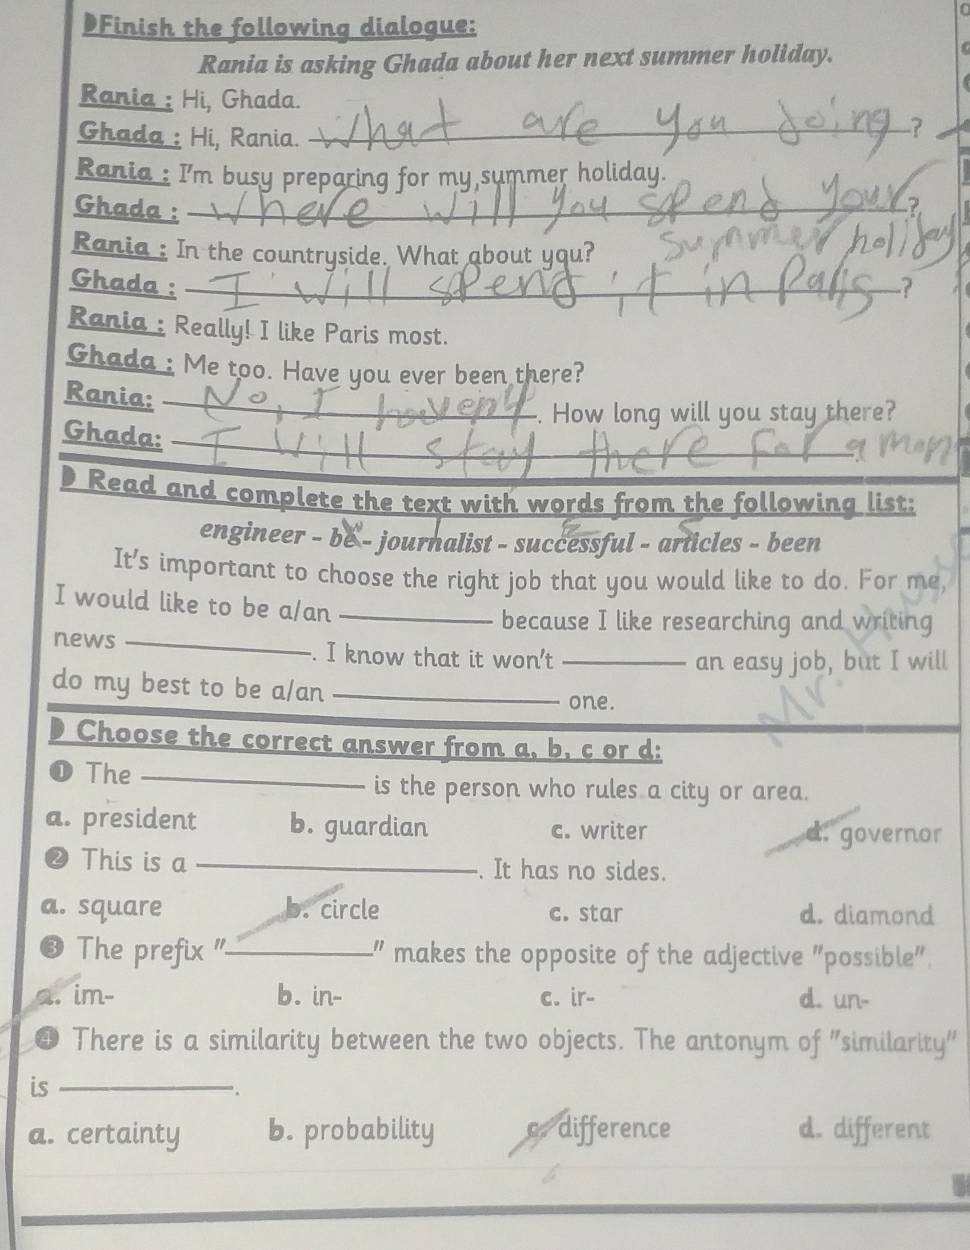 Finish the following dialogue:
Rania is asking Ghada about her next summer holiday.
Rania : Hi, Ghada.
Ghada : Hi, Rania. What are you doing ?
Rania : I'm busy preparing for my summer holiday.
Ghada : Where will you spend your ?
summer holiday
Rania : In the countryside. What about you?
Ghada : I will spend it in Paris ?
Rania : Really! I like Paris most.
Ghada : Me too. Have you ever been there?
Rania: No, I haven't. How long will you stay there?
Ghada: I will stay there for a mon
Read and complete the text with words from the following list:
engineer - be - journalist - successful - articles - been
It's important to choose the right job that you would like to do. For me,
I would like to be a/an ________ because I like researching and writing
news ________. I know that it won't ________ an easy job, but I will
do my best to be a/an ________ one.
Choose the correct answer from a, b, c or d:
❶ The ________ is the person who rules a city or area.
a. president b. guardian c. writer d. governor
❷ This is a ________. It has no sides.
a. square b. circle c. star d. diamond
❸ The prefix "________" makes the opposite of the adjective "possible".
a. im- b. in- c. ir- d. un-
❹ There is a similarity between the two objects. The antonym of "similarity"
is ________.
a. certainty b. probability c. difference d. different